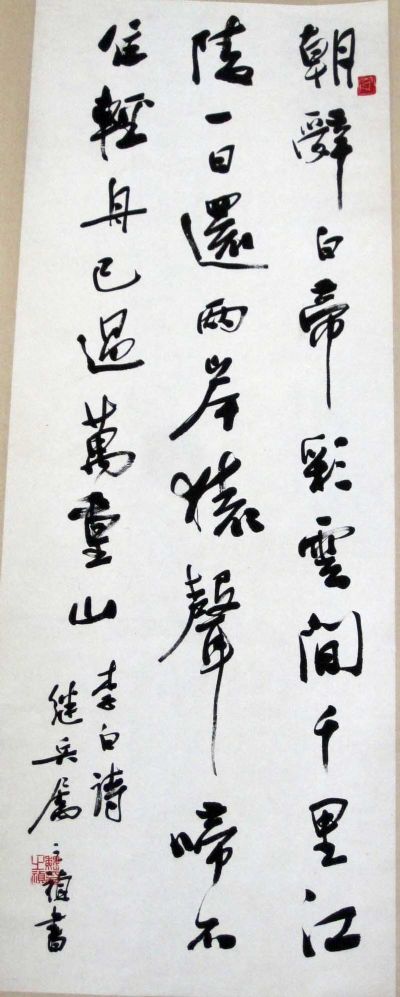 朝辭白帝彩雲間千里江
陵一日還兩岸猿聲啼不
住輕舟已過萬重山
李白詩
继兵属
之禎書